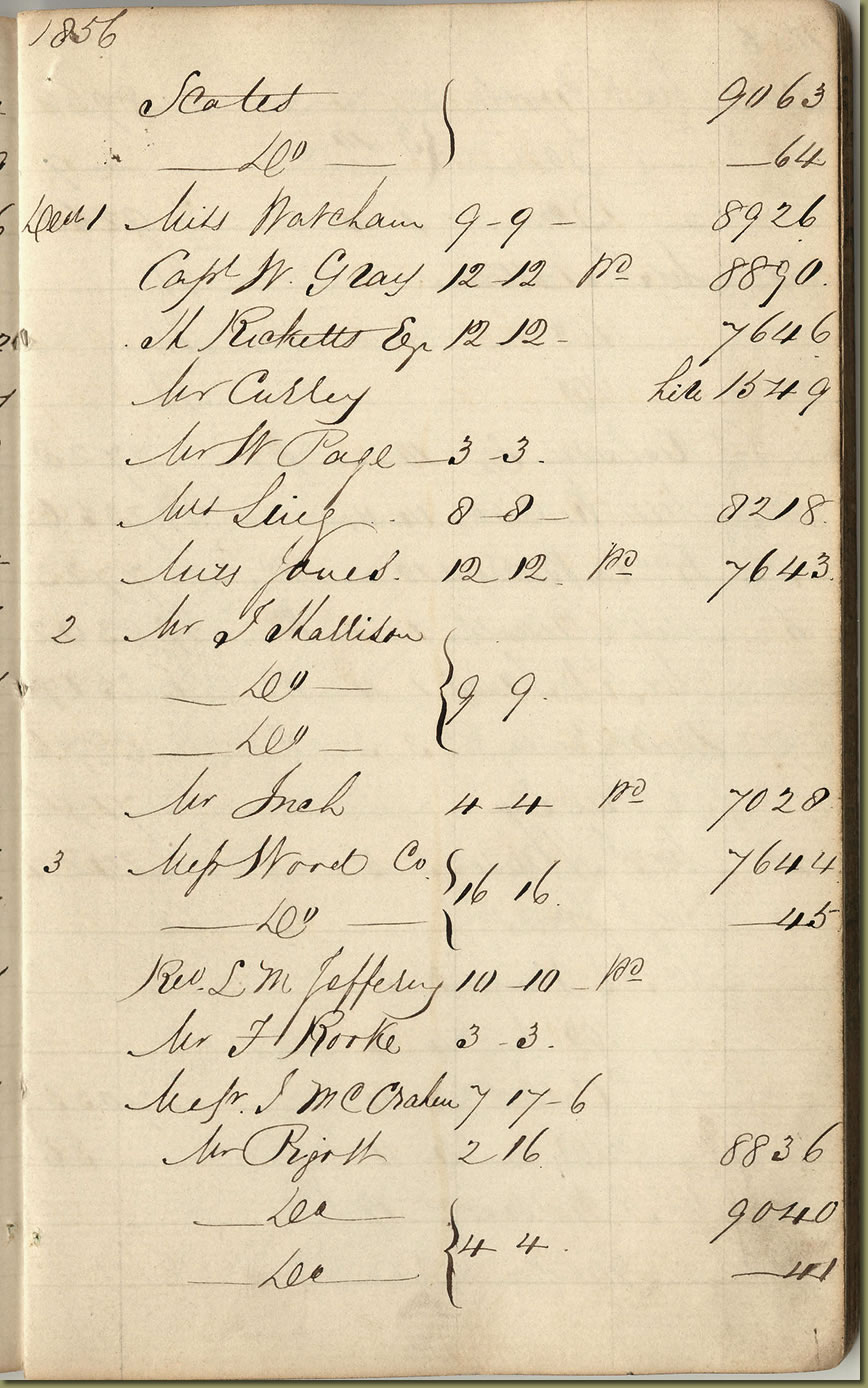 1856
Scates 9063
— Do — —64
Decr 1 Miss Watcham 9-9- 8926
Capt W. Gray 12-12 pd 8890.
H Ricketts Eqr 12 12- 7646
Mr Curley hire 1549
Mr W Page —3-3.
8-8- 8218.
Miss Jones. 12 12. pd 7643.
2 Mr J Hallison
— Do — 9 9.
— Do —
Mr Inch 4-4 pd 7028
3 Messr Ward Co. 16 16. 7644
— Do — —45
Rev. L M Jeffery 10-10- pd
Mr F Rooke 3-3.
Messr. J McCraken 7 17-6
Mr Pigott 2 16 8836
— Do — 9040
— Do — 4 4. —41